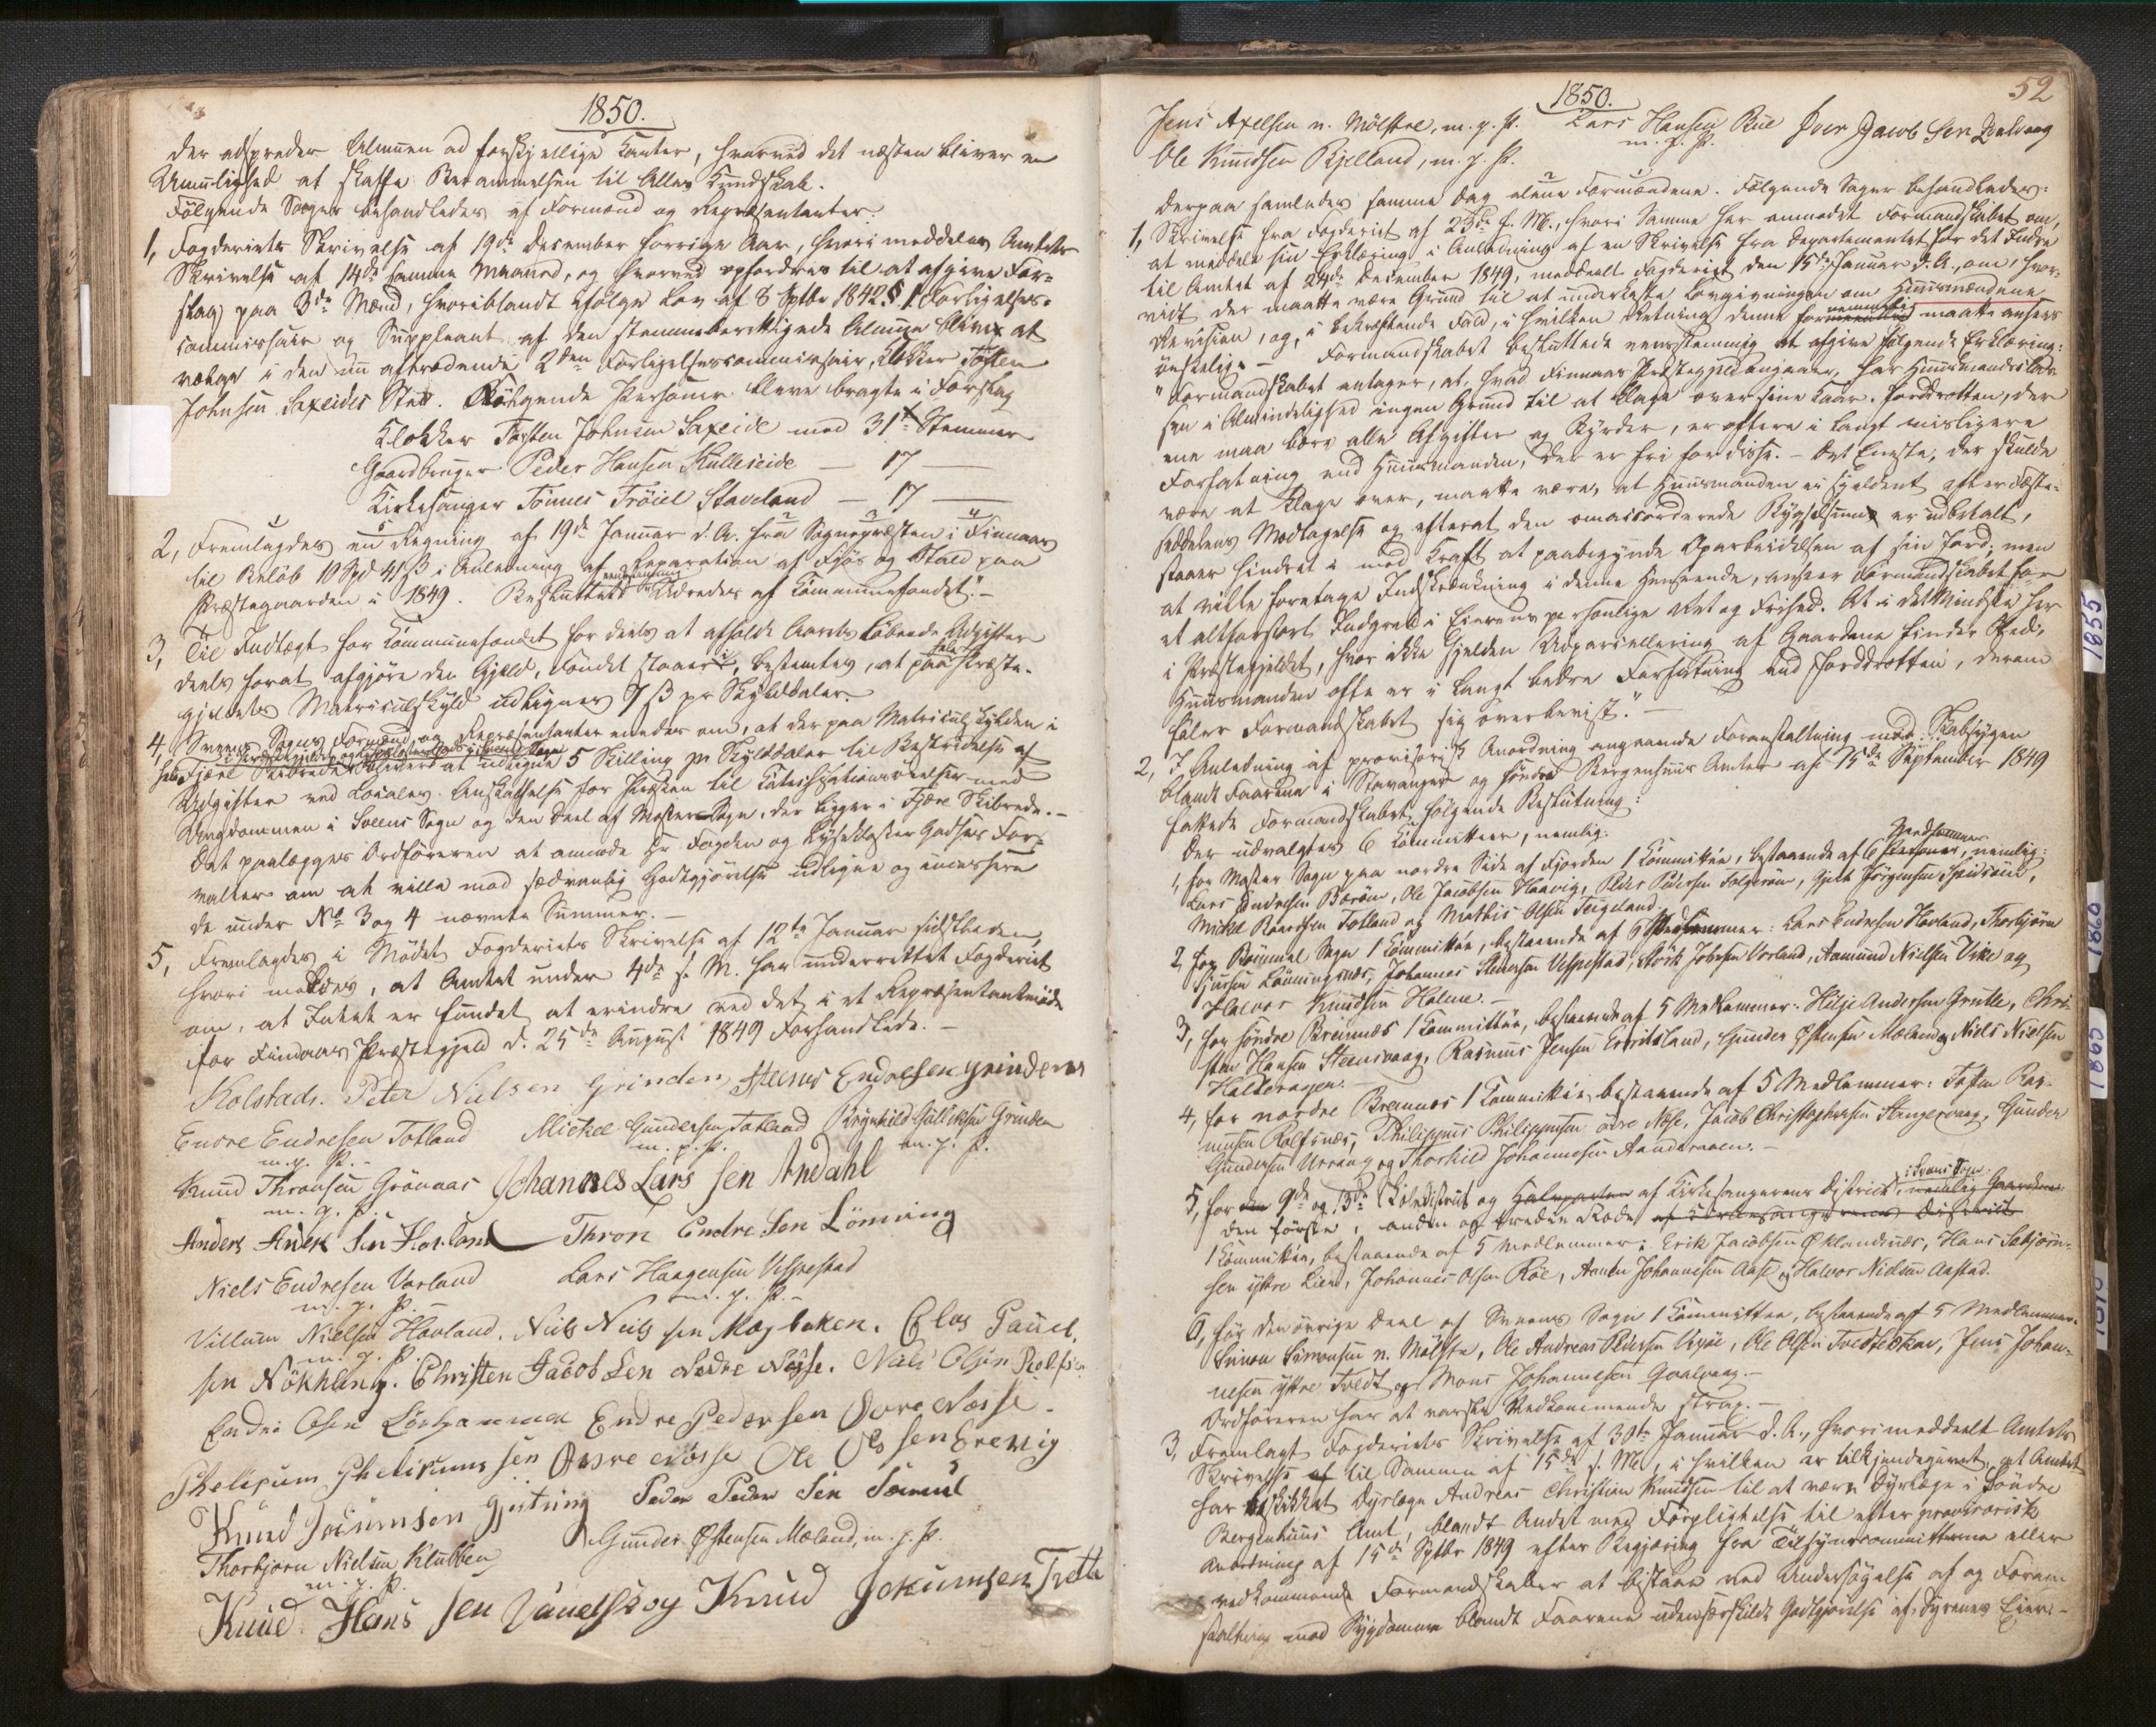 1850.
der adspreder Almuen ad forskjellige Kanter, hvorved det næsten bliver en
Umulighed at skaffe Berammelsen til Alles Kundskab.
Følgende Sager behandledes af Formænd og Repræsentanter:
1, Fogderiets Skrivelse af 19de Desember forrige Aar, hvori meddeles Amtets
Skrivelse af 14de samme Maaned, og hvorved opfordres til at afgive For-
slag paa 3de Mænd, hvoriblandt ifølge Lov af 8 Sptbr 1842 § 1 Forligelses-
commissair og Suppleant af den stemmeberettigede Almue bliver at
vælge i den nu aftrædende 2den Forligelsescommissair, Klokker Tosten
Johnsen Saxeides Sted. Følgende Personer bleve bragte i Forslag
Klokker Torsten Johnsen Saxeide med 31 Stemmer
Gaardbruger Peder Hansen Skulleseide — 17 —
Kirkesanger Tönnes Tröiel Staveland — 17 —
2, Fremlagdes en Regning af 19de Januar d. A. fra Sognepræsten i Finnaas
til Beløb 10 Spd 41 ß i Anledning af Reparation af Fjøs og Stald paa
Præstegaarden i 1849. Besluttedes eenstemmig "Udredes af Kommunefondet." —
3, Til Indtægt for Kommunefondet for deels at afholde Aarets løbende Udgifter
deels forat afgjøre den Gjeld, Fondet staaer i, bestemtes, at paa hele Præste-
gjeldets Matriculskyld udlignes 7 ß pr Skylddaler.
4, Sveens Sogns Formænd og Repræsentanter enedes om, at der paa Matriculskylden i
hele Fjære Skibrede bliver at udligne 5 Skilling pr Skylddaler til Bestridelse af
Udgifter ved Locales Anskaffelse for Præsten til Catechisationsøvelser med
Ungdommen i Sveens Sogn og den Deel af Moster Sogn, der ligger i Fjære Skibrede. —
Det paalægges Ordføreren at anmode Hr Fogden og Lysekloster Godses For-
valter om at ville mod sædvanlig Godtgjørelse udligne og incassere
de under No 3 og 4 nævnte Summer. —
5, Fremlagdes i Mødet Fogderiets Skrivelse af 12te Januar sidstleden,
hvori meldes, at Amtet under 4de s. M. har underrettet Fogderiet
om, at Intet er fundet at erindre ved det i et Repræsentantmøde
for Findaas Præstegjeld d. 25de August 1849 Forhandlede. —
Kolstad. Peter Nielsen Grinden Steenes Endresen Grindem
Endre Endresen Totland Mickel Gundersen Totland Brynhild Gullicksen Grinden
m. p. P. m. p. P. m. p. P.
Knud Thronsen Grönaas Johannes Lars sen Andahl
m. p. P.
Anders Anders Sen Hovland Thron Endre Sen Lönning
Niels Endresen Vorland Lars Haagensen Vespestad
m. p. P. m. p. P.
Villum Nielsen Hovland. Niels Niels sen Mogbaken. Elas Pauel
m. p. P.
sen Nökhling. Christen Jacob Sen Nedre Nösse. Niels Olsen Rolfsn
Endre Olsen Lörhammer Endre Pedersen Övre Nösse.
Phelipum Phelipums sen Övre Nösse Ole Ols sen Brevig
Knud Jocumsen Gjertning Peder Peder Sen Sörend
Thorbjørn Nielsen Klubben Gunder Østensen Mæland, m. p. P.
m. p. P.
Knud Hans sen Vaudsvog Knud Jokumsen Tvetto
52
1850.
Jens Axelsen n. Mölstre, m. p. P. Lars Hansen Rue Iver Jacob Sen Qvalvaag
Ole Knudsen Bjelland, m. p. P. m. p. P.
Derpaa samledes samme Dag alene Formændene. Følgende Sager behandledes:
1, Skrivelse fra Fogderiet af 23de f. M., hvori Samme har anmodet Formandskabet om,
at meddele sin Erklæring i Anledning af en Skrivelse fra Departementet for det Indre
til Amtet af 24de December 1849, meddeelt Fogderiet den 15de Januar d. A., om, hvor-
vidt der maatte være Grund til at underkaste Lovgivningen om Huusmændene
Revision, og, i bekræftende Fald, i hvilken Retning denne maatte ansees
ønskelig. — Formandskabet besluttede eenstemmig at afgive følgende Erklæring:
"Formandskabet antager, at, hvad Finnaas Præstegjeld angaaer, har Huusmandsklas-
sen i Almindelighed ingen Grund til at klage over sine Kaar. Jorddrotten, der
ene maa bære alle Afgifter og Byrder, er oftere i langt misligere
Forfatning end Huusmanden, der er fri for disse. — Det Eneste, der skulde
være at klage over, maatte være, at Huusmanden ei sjeldent efter Fæste-
seddelens Modtagelse og efterat den omaccorderede Bygselsum er udbetalt,
staaer hindret i med Kraft at paabegynde Oparbeidelsen af sin Jord; men
at ville foretage Indskrænkning i denne Henseende, anseer Formandskabet for
et altforstort Indgreb i Eierens personlige Ret og Frihed. At i det Mindste her
i Præstegjeldet, hvor ikke sjelden Udparcellering af Gaardene finder Sted,
Huusmanden ofte er i langt bedre Forfatning end Jorddrotten, derom
føler Formandskabet sig overbevist." —
2, I Anledning af provisorisk Anordning angaaende Foranstaltning mod Skabsygen
blandt Faarene i Stavanger og søndre Bergenhuus Amter af 15de September 1849
fattede Formandskabet følgende Beslutning:
Der udvalgtes 6 Committeer, nemlig:
1, for Moster Sogn paa nordre Side af Fjorden 1 Committée, bestaaende af 6 Medlemmer, nemlig:
Lars Endresen Bærøen, Ole Jacobsen Haavig, Peder Pedersen Folgerøen, Gjert Jørgensen Speidsøen,
Mickel Baardsen Totland og Mathis Olsen Teigeland.
2, for Bömmel Sogn 1 Committée, bestaaende af 6 Medlemmer: Lars Endresen Hovland, Thorbjørn
Sjursen Lönningnæs, Johannes Steensen Vespestad, Störk Johnsen Vorland, Aamund Nielsen Vike og
Halvor Knudsen Holme. —
3, for søndre Bremnæs 1 Committée, bestaaende af 5 Medlemmer: Hilje Andersen Grutle, Chri-
sten Hansen Steensvaag, Rasmus Jensen Eeritsland, Gunder Østensen Mæland og Niels Nielsen
Halleragen. —
4, for nordre Bremnæs 1 Committée, bestaaende af 5 Medlemmer: Tosten Ras-
musen Rolfsnæs, Philippus Philippussen øvre Nöse, Jacob Christophersen Stangervaag, Gunder
Gundersen Urrang og Thorkild Johannesen Aandernaen. —
5, for 9de og 13de Skoledistrict og af Kirkesangerens District, i Sveens Sogn
den første, anden og tredie Rode
1 Committée, bestaaende af 5 Medlemmer: Erik Jacobsen Øklandnæs, Hans Sebjørn-
sen ystre Lien, Johannes Olsen Röe, Anders Johannesen Aase og Halvor Nielsen Aastad.
6, for den øvrige Deel af Sveens Sogn 1 Committee, bestaaende af 5 Medlemmer.
Simon Simonsen n. Mölstre, Ole Andreas Pedersen Ryøe, Ole Olsen Tvedteskar, Jens Johan-
nesen ystre Tvedt og Mons Johannesen Qvalvaag. —
Ordføreren har at varsle Vedkommende strax. —
3, Fremlagt Fogderiets Skrivelse af 30te Januar d. A., hvori meddeelt Amtets
Skrivelse til Samme af 15de s. M., i hvilken er tilkjendegivet, at Amtet
har beskikket Dyrlæge Andreas Christian Knudsen til at være Dyrlæge i Søndre
Bergenhuus Amt, blandt Andet med Forpligtelse til efter provisorisk
Anordning af 15de Sptbr 1849 efter Begjæring fra Tilsynscommitteerne eller
vedkommende Formandskaber at bistaae ved Undersøgelse af og Foran-
staltning mod Sygdomme blandt Faarene uden særskildt Godtgjørelse af Dyrenes Eiere. —
1855
1860
1865
1870